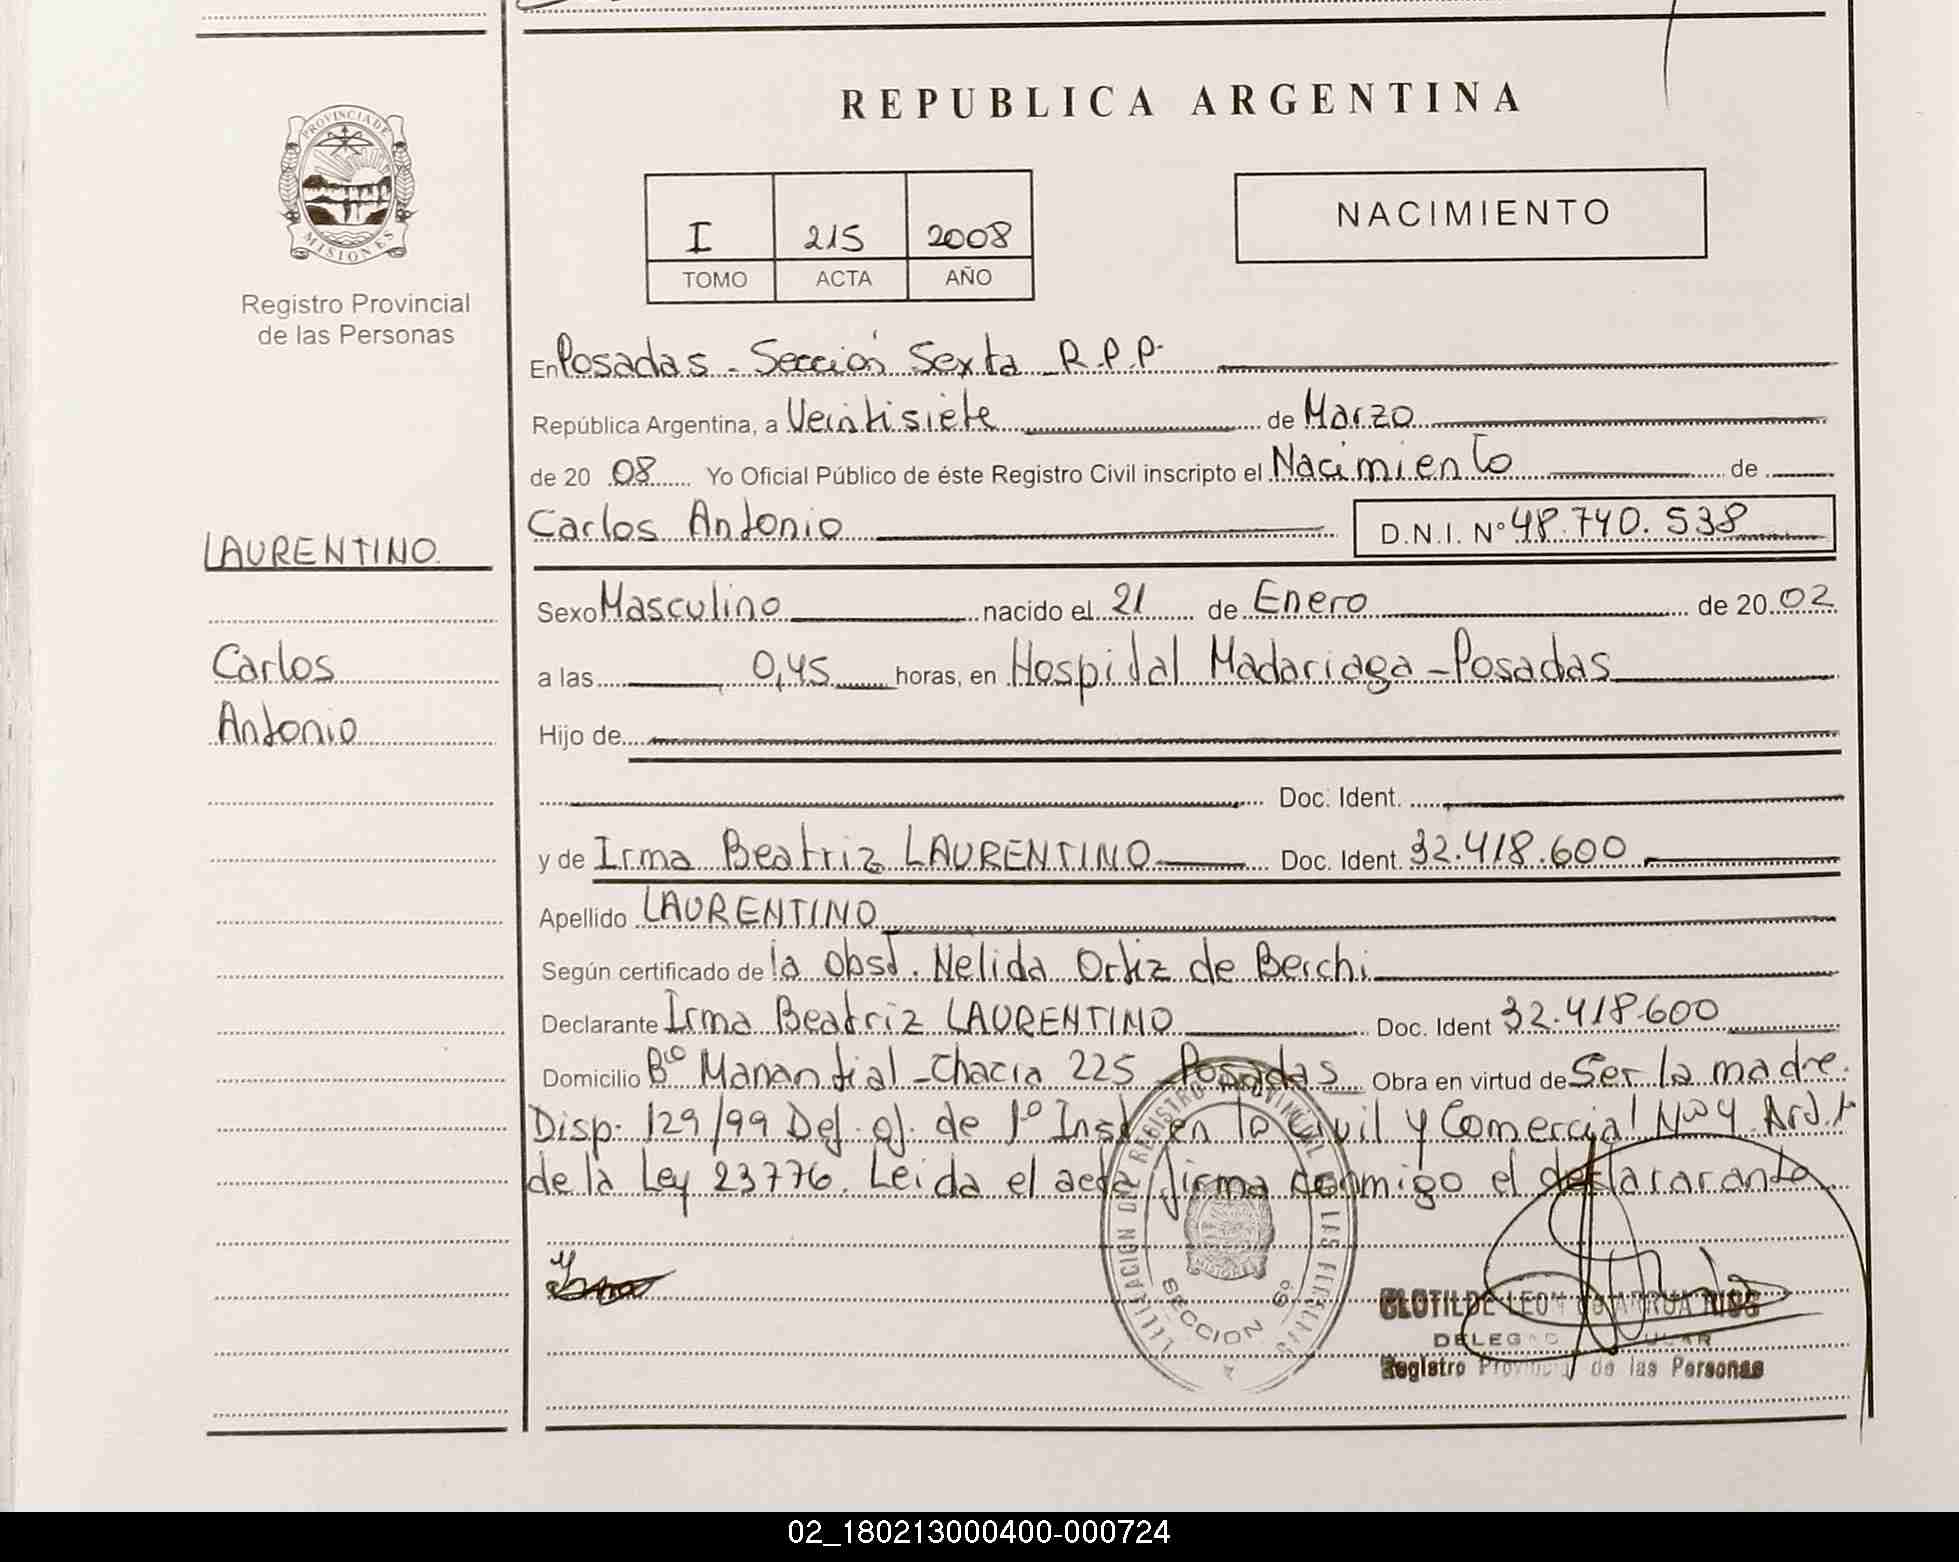 REPUBLICA ARGENTINA
PROVINCIA DE
MISIONES
Registro Provincial
de las Personas
I 215 2008
TOMO ACTA AÑO
NACIMIENTO
En Posadas - Sección Sexta - R.P.P.
República Argentina, a Veintisiete de Marzo
de 20 08 Yo Oficial Público de éste Registro Civil inscripto el Nacimiento de
Carlos Antonio D.N.I. Nº 48.740.538
LAURENTINO
Carlos
Antonio
Sexo Masculino nacido el 21 de Enero de 20 02
a las 0,45 horas, en Hospital Madariaga - Posadas
Hijo de
Doc. Ident.
y de Irma Beatriz LAURENTINO Doc. Ident. 32.418.600
Apellido LAURENTINO
Según certificado de la obst. Nelida Ortiz de Berchi
Declarante Irma Beatriz LAURENTINO Doc. Ident 32.418.600
Domicilio Bº Manantial - Chacra 225 - Posadas Obra en virtud de Ser la madre.
Disp. 129/99 Def. of. de 1º Inst en lo Civil y Comercial Nº 4 Art. 1
de la Ley 23776. Leida el acta firma conmigo el declararante
SECCION 6º
CLOTILDE LEON de ARRUA
DELEGADO TITULAR
Registro Provincial de las Personas
02_180213000400-000724